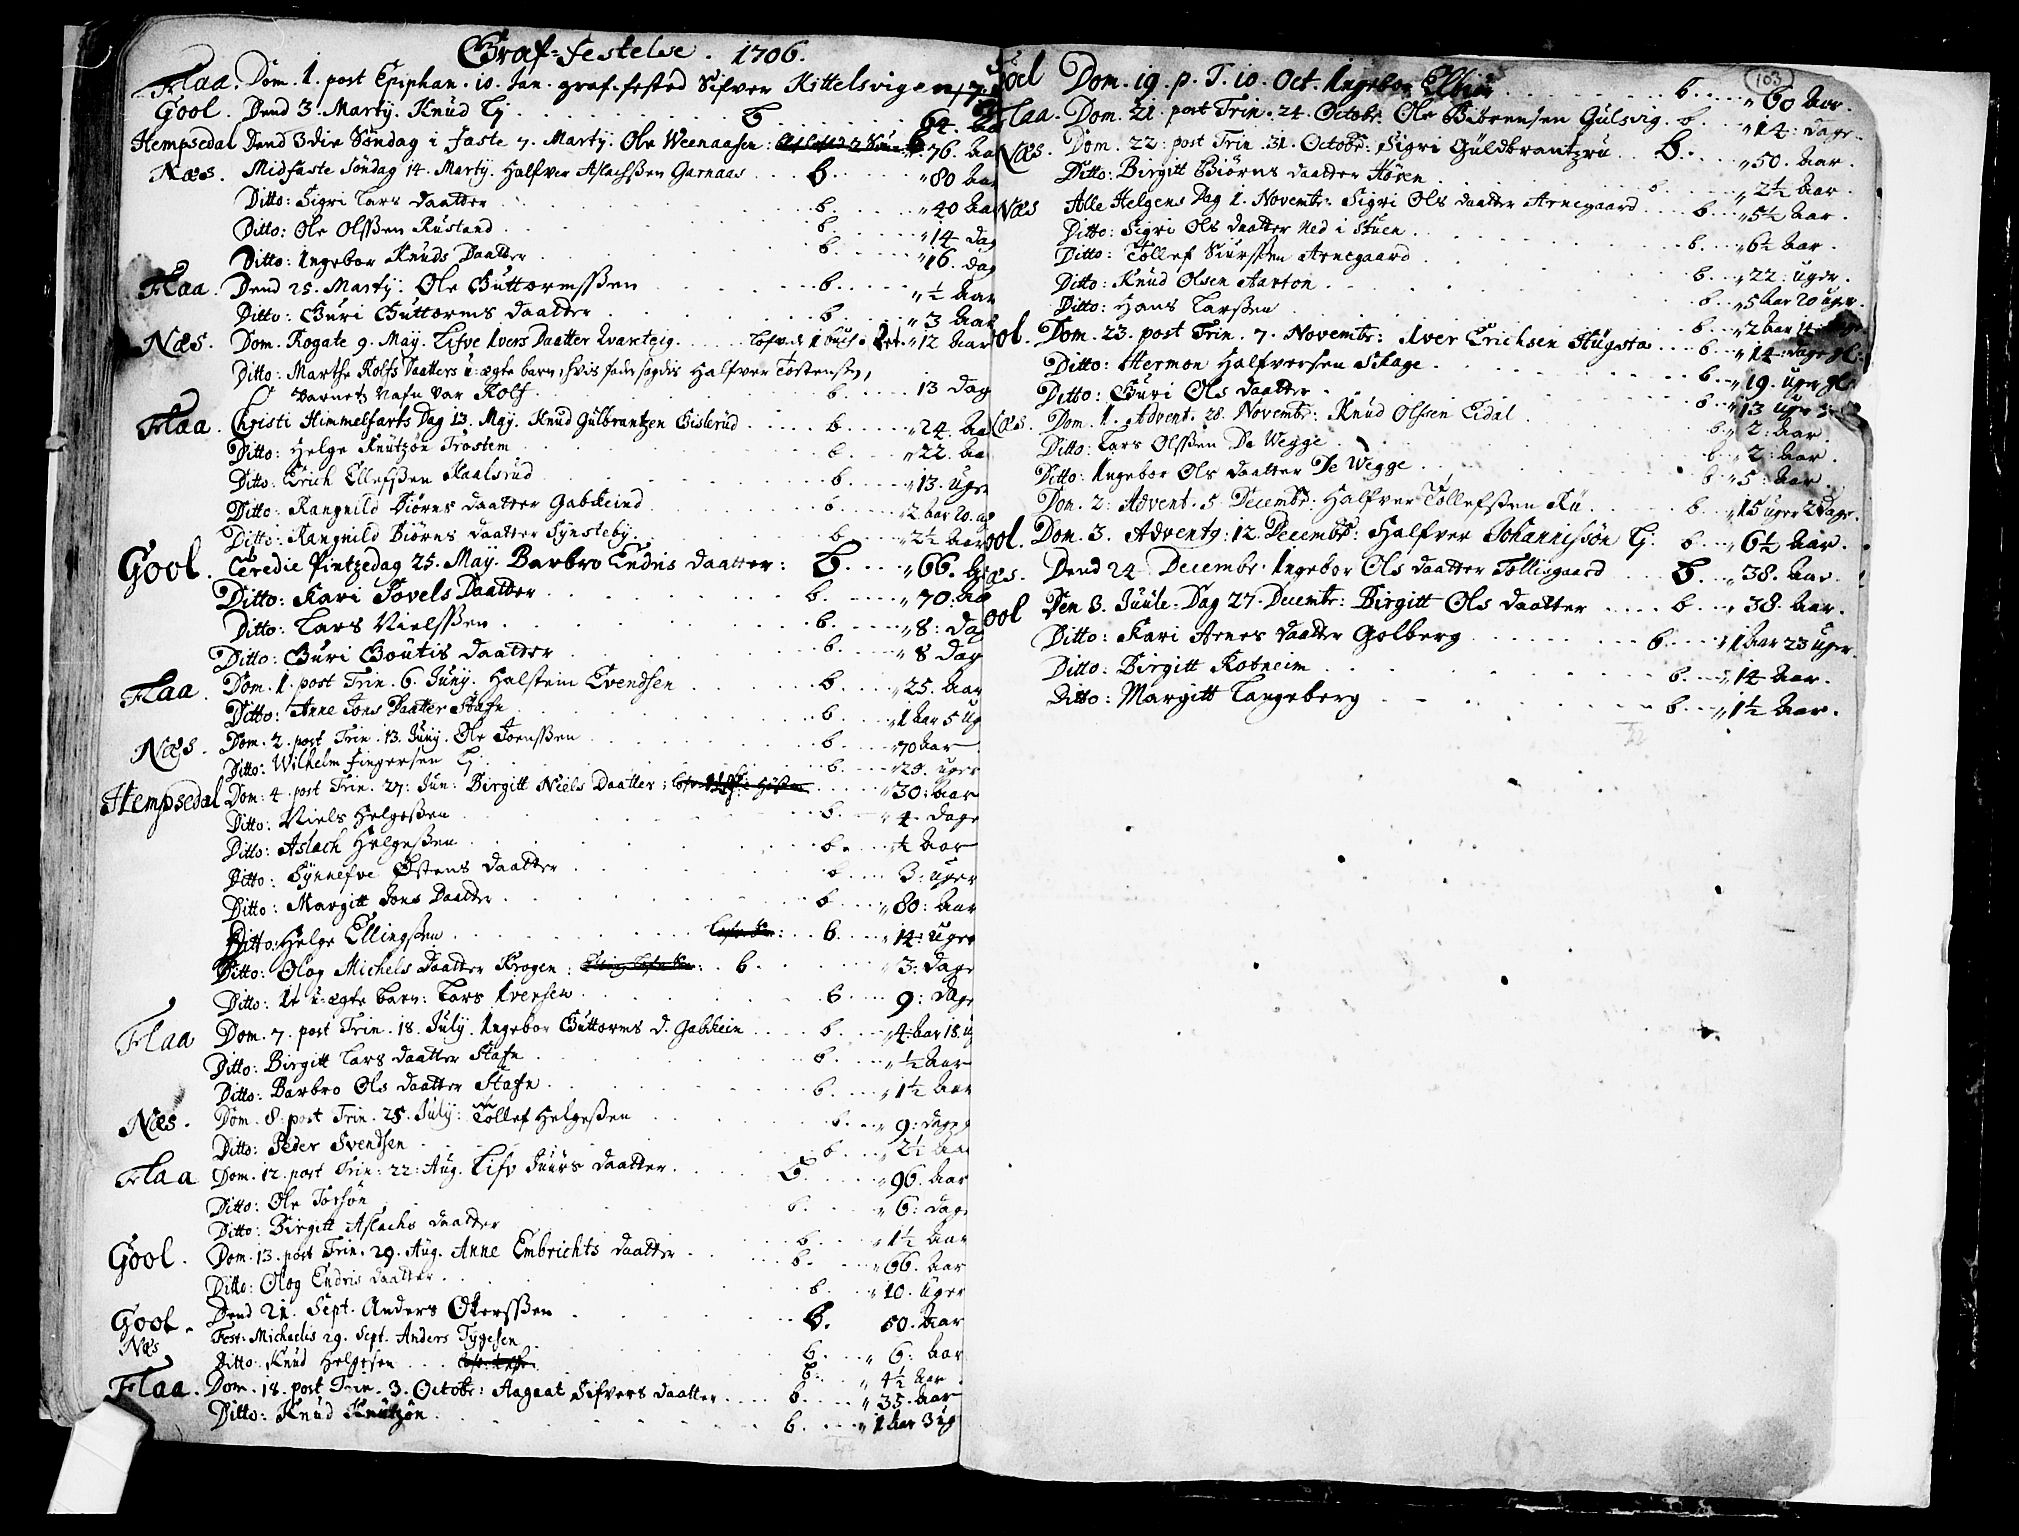 Graf-festelse. 1706.
Flaa. Dom. 1. post Epiphan. 10. Jan. graf-fested Sifver Kittelsvig
Gool. Dend 3. Martij. Knud G b. 64. Aar
Hempsedal Dend 3die Söndag i faste 7. Martij. Ole Weenaasen: 76. Aar
Næs. Midfaste Söndag 14. Martij. Halfver Aslachssen Garnaas b. 80 Aar
Ditto: Sigri Lars daatter b. 40 Aar
Ditto: Ole Olssen Rustand b. 14 dag
Ditto: Ingebor Knuds Daatter b. 16. dag
Flaa. Dend 25. Martij. Ole Guttormssen b. ½ Aar
Ditto: Guri Guttorms daatter b. 3 Aar
Næs. Dom. Rogate 9. Maij. Lifve Ivers Daatter Kvarteig 12 Aar
Ditto: Marthe Rolfs Daatters u-ægte barn, hvis fader sagdis Halfver Tostensen,
Barnets nafn var Rolf b. 13 dag
Flaa. Christi Himmelfarts Dag 13. Maij. Knud Gulbrantzen Gislerud b. 24. Aar
Ditto: Helge Knutzön Trostem b. 22. Aa
Ditto: Erich Ellefssen Kaalsrud b. 13. uger
Ditto: Rangnild Biörns daatter Gabkeind b. 2 Aar 20. ug
Ditto: Rangnild Biörns daatter Synsteby. b. 2½ Aar
Gool. Teredie Pintzedag 25. Maij. Barbro Endris daatter: b. 66. Aa
Ditto: Kari Povels Daatter b. 70. Aa
Ditto: Lars Nielssen b. 8: dag
Ditto: Guri Goutis daatter b. 8 dag
Flaa. Dom. 1. post Trin. 6. Junij. Halstein Evendsen b. 25. Aar
Ditto: Anne Jons Daatter Stafn b. 1 Aar 5 ug
Næs. Dom. 2. post Trin. 13. Junij. Ole Joenssen b. 70 Aar
Ditto: Wilhelm Fingersen G b. 29. uger
Hempsedal Dom: 4. post Trin. 27. Jun: Birgitt Niels Daatter: 30: Aar
Ditto: Niels Helgessen b. 4. dage
Ditto: Aslach Helgessen b. ½ Aar
Ditto: Synnefve Östens daatter b. 3: uger
Ditto: Margitt Jons Daatter b. 80: Aar
Ditto: Helge Ellingssen b. 14: uger
Ditto: Olog Michels daatter Krogen: b. 3: dage
Ditto: It u-ægte barn: Lars Iversen b. 9: dage
Flaa Dom. 7. post Trin. 18. Julij. Ingebor Guttorms d. Gabkein b. 4 Aar 18. u
Ditto: Birgitt Lars daatter Stafn b. ½ Aar
Ditto: Barbro Ols daatter Stafn b. 1½ Aar
Næs. Dom. 8. post Trin. 25. Julij: Tollef Helgessen b. 9: dage
Ditto: Peder Svendsen b. 2½ Aa
Flaa Dom. 12. post Trin: 22: Aug. Lifv Juurs daatter. b. 96. Aar
Ditto: Ole Torsön b. 6: dage
Ditto: Birgitt Aslachs daatter b. 1½ Aar
Gool. Dom. 13. post Trin. 29. Aug. Anne Embrichts daatter b. 66. Aar
Ditto: Olog Endris daatter b. 10. uger
Gool. Dend 21. Sept. Anders Olerssen b. 50. Aar
Næs Fest: Michaelis 29. Sept. Anders Tygesen b. 6: Aar
Ditto: Knud Helgesen b. 4½ Aar
Flaa. Dom. 18. post Trin. 3. Octobr: Aagaat Sifvers daatter b. 35. Aar
Ditto: Knud Knutzön b. 1 Aar 3 ug
103
Gool Dom. 19. p. T. 10. Oct. Ingebor b. 60 Aar.
Flaa. Dom. 21. post Trin. 24. Octobr. Ole Biörensen Gulsvig. b. 14: dage.
Næs. Dom. 22: post Trin. 31. Octobr: Sigri Guldbrantzru b. 50. Aar.
Ditto: Birgitt Biörns daatter Höven b. 2½ Aar.
Næs Alle Helgens Dag 1. Novembr: Sigri Ols daatter Arnegaard b. 5½ Aar.
Ditto: Sigri Ols daatter Ned i Stuen b. 6½ Aar.
Ditto: Tollef Siurssen Arnegaard b. 22: uger.
Ditto: Knud Olsen Aarton b. 5 Aar 20 uger.
Ditto: Hans Larssen b. 2 Aar
ool. Dom. 23. post Trin. 7. Novembr: Iver Erichsen Hugsta b. 14: dage
Ditto: Hermon Halfversen Skage b. 19. uger
Ditto: Guri Ols daatter b. 13 uger
Næs. Dom. 1. Advent. 28. Novembr: Knud Olssen Eidal b. 2: Aar.
Ditto: Lars Olssen De Wegge b. 2: Aar.
Ditto: Ingebor Ols daatter De Wegge b. 5: Aar.
Dom. 2: Advent. 5. Decembr: Halfver Tollefssen Ru b. 15 uger 2 dage.
ool. Dom. 3. Advents: 12. Decembr: Halfver Johannissön G. b. 6½ Aar.
æs. Dend 24 Decembr. Ingebor Ols daatter Tollisgaard b. 38. Aar.
ool Den 3. Juule-Dag 27. Decembr: Birgitt Ols daatter b. 38. Aar.
Ditto: Kari Arnes daatter Golberg b. 1 Aar 23 uger.
Ditto: Birgitt Robneim b. 14 Aar.
Ditto: Margitt Langeberg b. 1½ Aar.